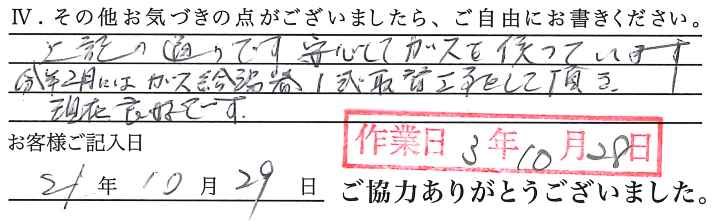 Ⅳ．その他お気づきの点がございましたら、ご自由にお書きください。
上記の通りです 安心してガスを使っています
年2月には ガス給湯器1式取替工事をして頂き
現在良好です.
お客様ご記入日
作業日 3年10月28日
21年10月29日
ご協力ありがとうございました。